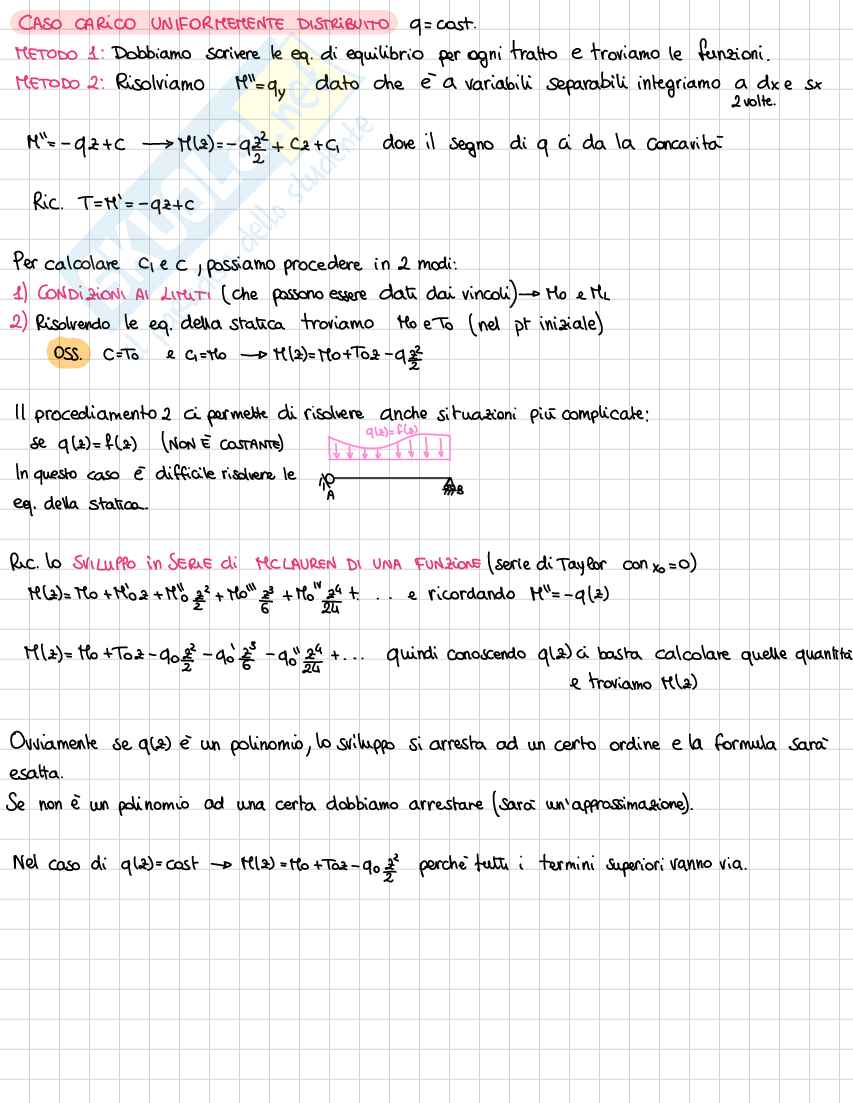 CASO CARICO UNIFORMEMENTE DISTRIBUITO q=cost.
METODO 1: Dobbiamo scrivere le eq. di equilibrio per ogni tratto e troviamo le funzioni.
METODO 2: Risolviamo M''=qy dato che è a variabili separabili integriamo a dx e sx
2 volte.
M''=-qz+c → M(z)=-q z²/2 + Cz+C₁ dove il segno di q ci da la concavità
Ric. T=M'=-qz+c
Per calcolare C₁ e C, possiamo procedere in 2 modi:
1) CONDIZIONI AI LIMITI (che possono essere dati dai vincoli) → M₀ e ML
2) Risolvendo le eq. della statica troviamo M₀ e T₀ (nel pt iniziale)
OSS. C=T₀ e C₁=M₀ → M(z)=M₀+T₀z-q z²/2
Il procediamento 2 ci permette di risolvere anche situazioni più complicate:
se q(z)=f(z) (NON È COSTANTE)
q(z)=f(z)
In questo caso è difficile risolvere le
eq. della statica.
A B
Ric. lo SVILUPPO in SERIE di MCLAUREN DI UNA FUNZIONE (serie di Taylor con x₀=0)
M(z)=M₀+M'₀z+M''₀ z²/2+M₀''' z³/6+M₀ᴵⱽ z⁴/24+... e ricordando M''=-q(z)
M(z)=M₀+T₀z-q₀ z²/2-q₀' z³/6-q₀'' z⁴/24+... quindi conoscendo q(z) ci basta calcolare quelle quantità
e troviamo M(z)
Ovviamente se q(z) è un polinomio, lo sviluppo si arresta ad un certo ordine e la formula sarà
esatta.
Se non è un polinomio ad una certa dobbiamo arrestare (sarà un'approssimazione).
Nel caso di q(z)=cost → M(z)=M₀+T₀z-q₀ z²/2 perchè tutti i termini superiori vanno via.
skuola.net
il paradiso dello studente